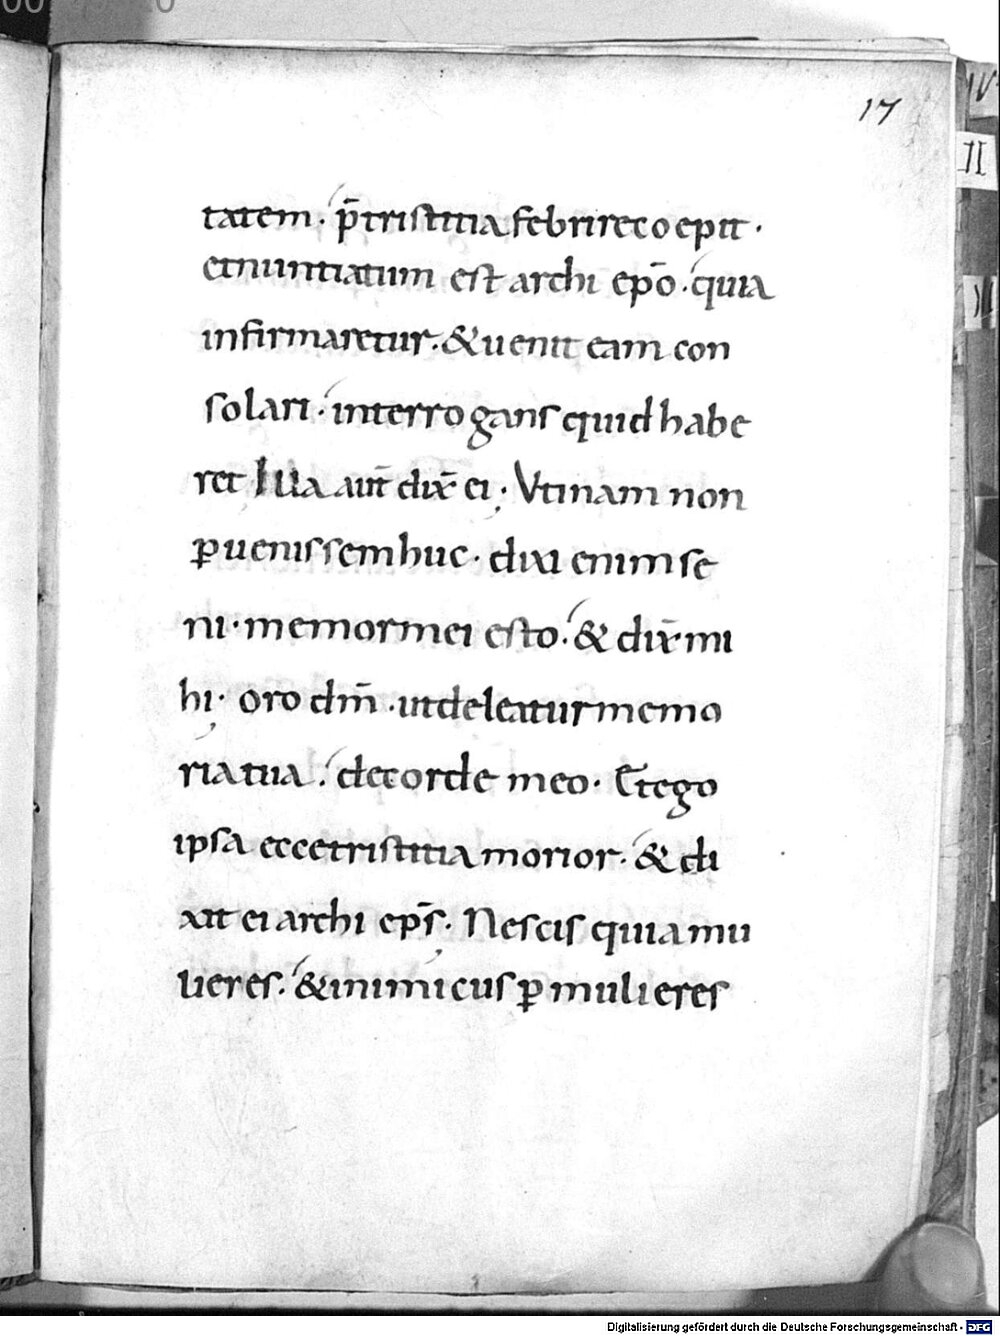 17
tatem. p̄tristitia febrire coepit.
etnuntiatum est archi ep̄o. quia
infirmaretur. & uenit eam con
solari. interrogans quid habe
ret Illa aut̄ dix̄ ei; Vtinam non
ꝑuenissem huc. dixi enim se
ni. memor mei esto. & dix̄ mi
hi; oro dm̄. ut deleatur memo
ria tua. de corde meo. Et ego
ipsa ecce tristitia morior. & di
xit ei archi ep̄s. Nescis quia mu
lieres. & inimicus ꝑ mulieres
II
Digitalisierung gefördert durch die Deutsche Forschungsgemeinschaft - DFG